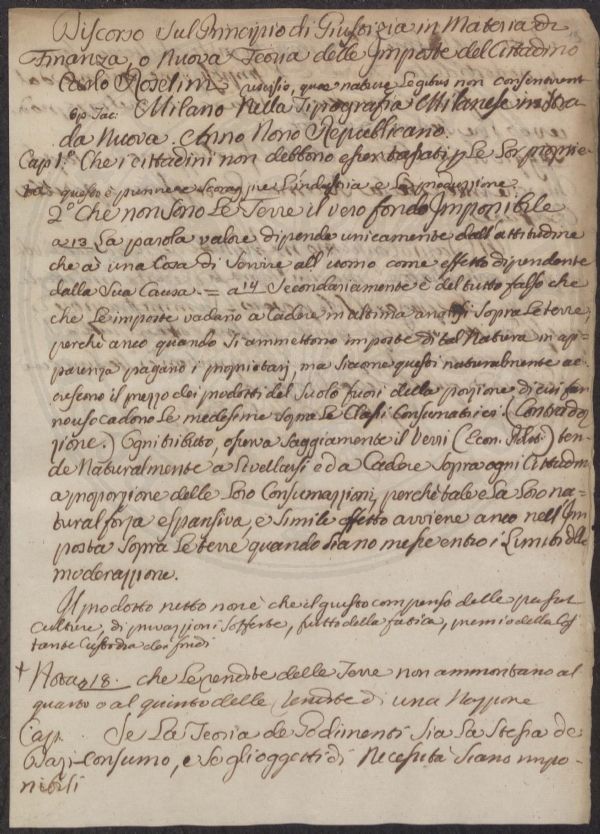 Discorso sul Principio di Giustizia in Materia di
Finanza, o Nuova Teoria delle Imposte del Cittadino
Carlo Roselini quae natura Legibus non consentiunt
Tac: Milano Nella Tipografia Milanese in Stra
da Nuova. Anno Nono Republicano.
Cap 1.º Che i cittadini non debbono esser tassati p Le Lor proprie
tà questo è punire e scoraggire L'industria e La produzzione.
2º Che non sono Le Terre il vero fondo Imponibile
a 13 La parola valore dipende unicamente dall'attitudine
che à una Cosa di servire all'uomo come effetto dipendente
dalla Sua Causa. = a 14 Secondariamente è del tutto falso che
che Le imposte vadano a Cadere in ultima analisi sopra Le terre,
perchè anco quando si ammettono imposte di tal Natura in ap=
parenza pagano i proprietarj, ma siccome questi naturalmente ac
crescono il prezzo dei prodotti del Suolo fuori della porzione di cui fan
no uso cadono Le medesime sopra Le Classi Consumatrici. (Contrador
zione.) Ogni tributo, osserva saggiamente il Verri (Econ. Polit:) ten=
de Naturalmente a Livellarsi ed a Cadere sopra ogni Cittadino
a proporzione delle Loro Consumazzioni, perchè tale è La Loro na
tural forza espansiva, e simile effetto avviene anco nell'Im
posta sopra Le terre quando siano messe entro i Limiti dlle
moderazzione.
Il prodotto netto non è che il giusto compenso delle passat
culture, di privazzioni sofferte, frutto della fatica, premio della Cos
tante Custodia dei fondi
+ Nota a 18. che Le rendite delle Terre non ammontano al
quarto o al quinto delle rendite di una Nazzione
Cap. Se La Teoria de Podimenti sia La Stessa de
Dazi-Consumo, e se gli oggetti di Necessità siano impo-
nibili